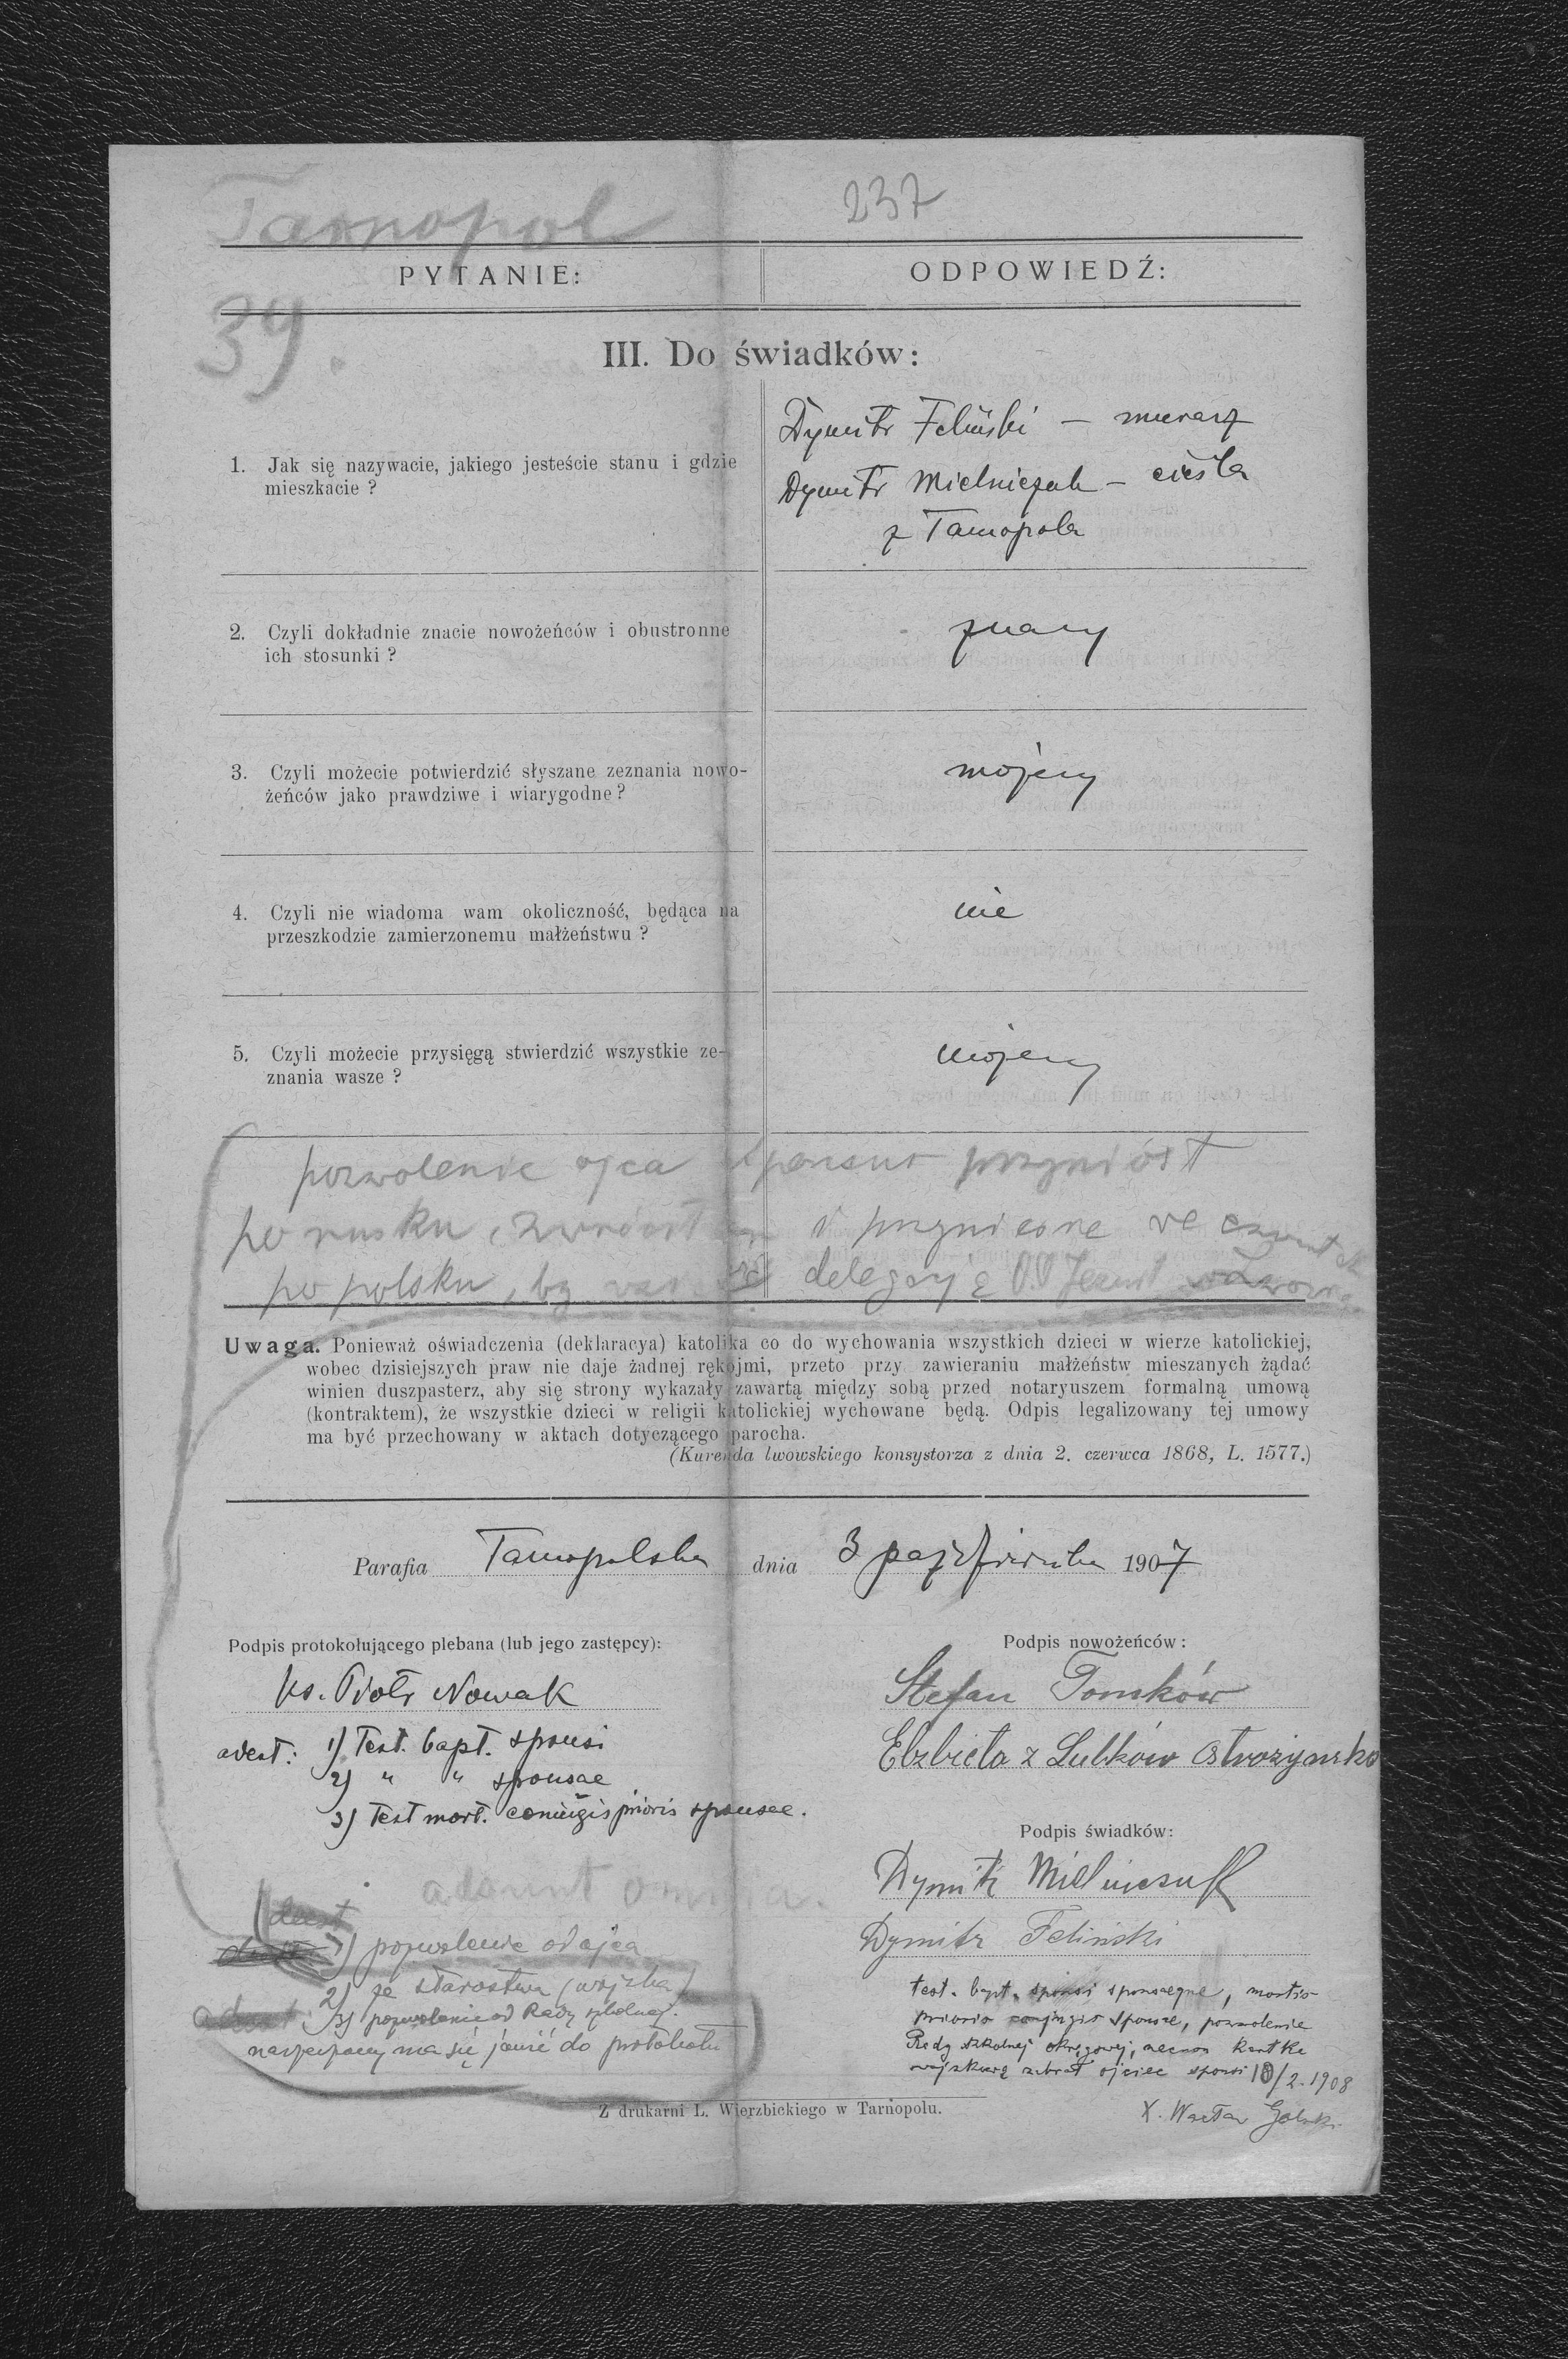 Tarnopol
237
PYTANIE:
ODPOWIEDŹ:
39.
III. Do świadków:
1. Jak się nazywacie, jakiego jesteście stanu i gdzie
mieszkacie ?
Dymitr Feliński — murarz
Dymitr Mielniczuk — cieśla
z Tarnopola
2. Czyli dokładnie znacie nowożeńców i obustronne
ich stosunki ?
znamy
3. Czyli możecie potwierdzić słyszane zeznania nowo-
żeńców jako prawdziwe i wiarygodne ?
możemy
4. Czyli nie wiadoma wam okoliczność, będąca na
przeszkodzie zamierzonemu małżeństwu ?
nie
5. Czyli możecie przysięgą stwierdzić wszystkie ze-
znania wasze ?
możemy
pozwolenie ojca sponsus przyniósł
po rusku, i przyniesie we czwartek
po polsku, by delegację O.O. Jezuit
Uwaga. Ponieważ oświadczenia (deklaracya) katolika co do wychowania wszystkich dzieci w wierze katolickiej,
wobec dzisiejszych praw nie daje żadnej rękojmi, przeto przy zawieraniu małżeństw mieszanych żądać
winien duszpasterz, aby się strony wykazały zawartą między sobą przed notaryuszem formalną umową
(kontraktem), że wszystkie dzieci w religii katolickiej wychowane będą. Odpis legalizowany tej umowy
ma być przechowany w aktach dotyczącego parocha.
(Kurenda lwowskiego konsystorza z dnia 2. czerwca 1868, L. 1577.)
Parafia Tarnopolska dnia 3 października 1907
Podpis protokołującego plebana (lub jego zastępcy):
ks. Piotr Nowak
adest: 1) Test. bapt. sponsi
2) " " sponsae
3) Test mort. coniugis prioris sponsae.
Podpis nowożeńców:
Stefan Tomków
Elżbieta z Lulków Ostrożyńska
Podpis świadków:
Dymitr Mielniczuk
Dymitr Feliński
adsunt omnia.
deest
1) pozwolenie od ojca
2) ze starostwa (wojska)
3) pozwolenie od Rady szkolnej.
narzeczony ma się jawić do protokołu
test. bapt. sponsi sponsaeque, mortis
prioris conjugis sponsae, pozwolenie
Rady szkolnej okręgowej, necnon kartkę
wojskową zabrał ojciec sponsi 10/2. 1908
X. Wacław
Z drukarni L. Wierzbickiego w Tarnopolu.